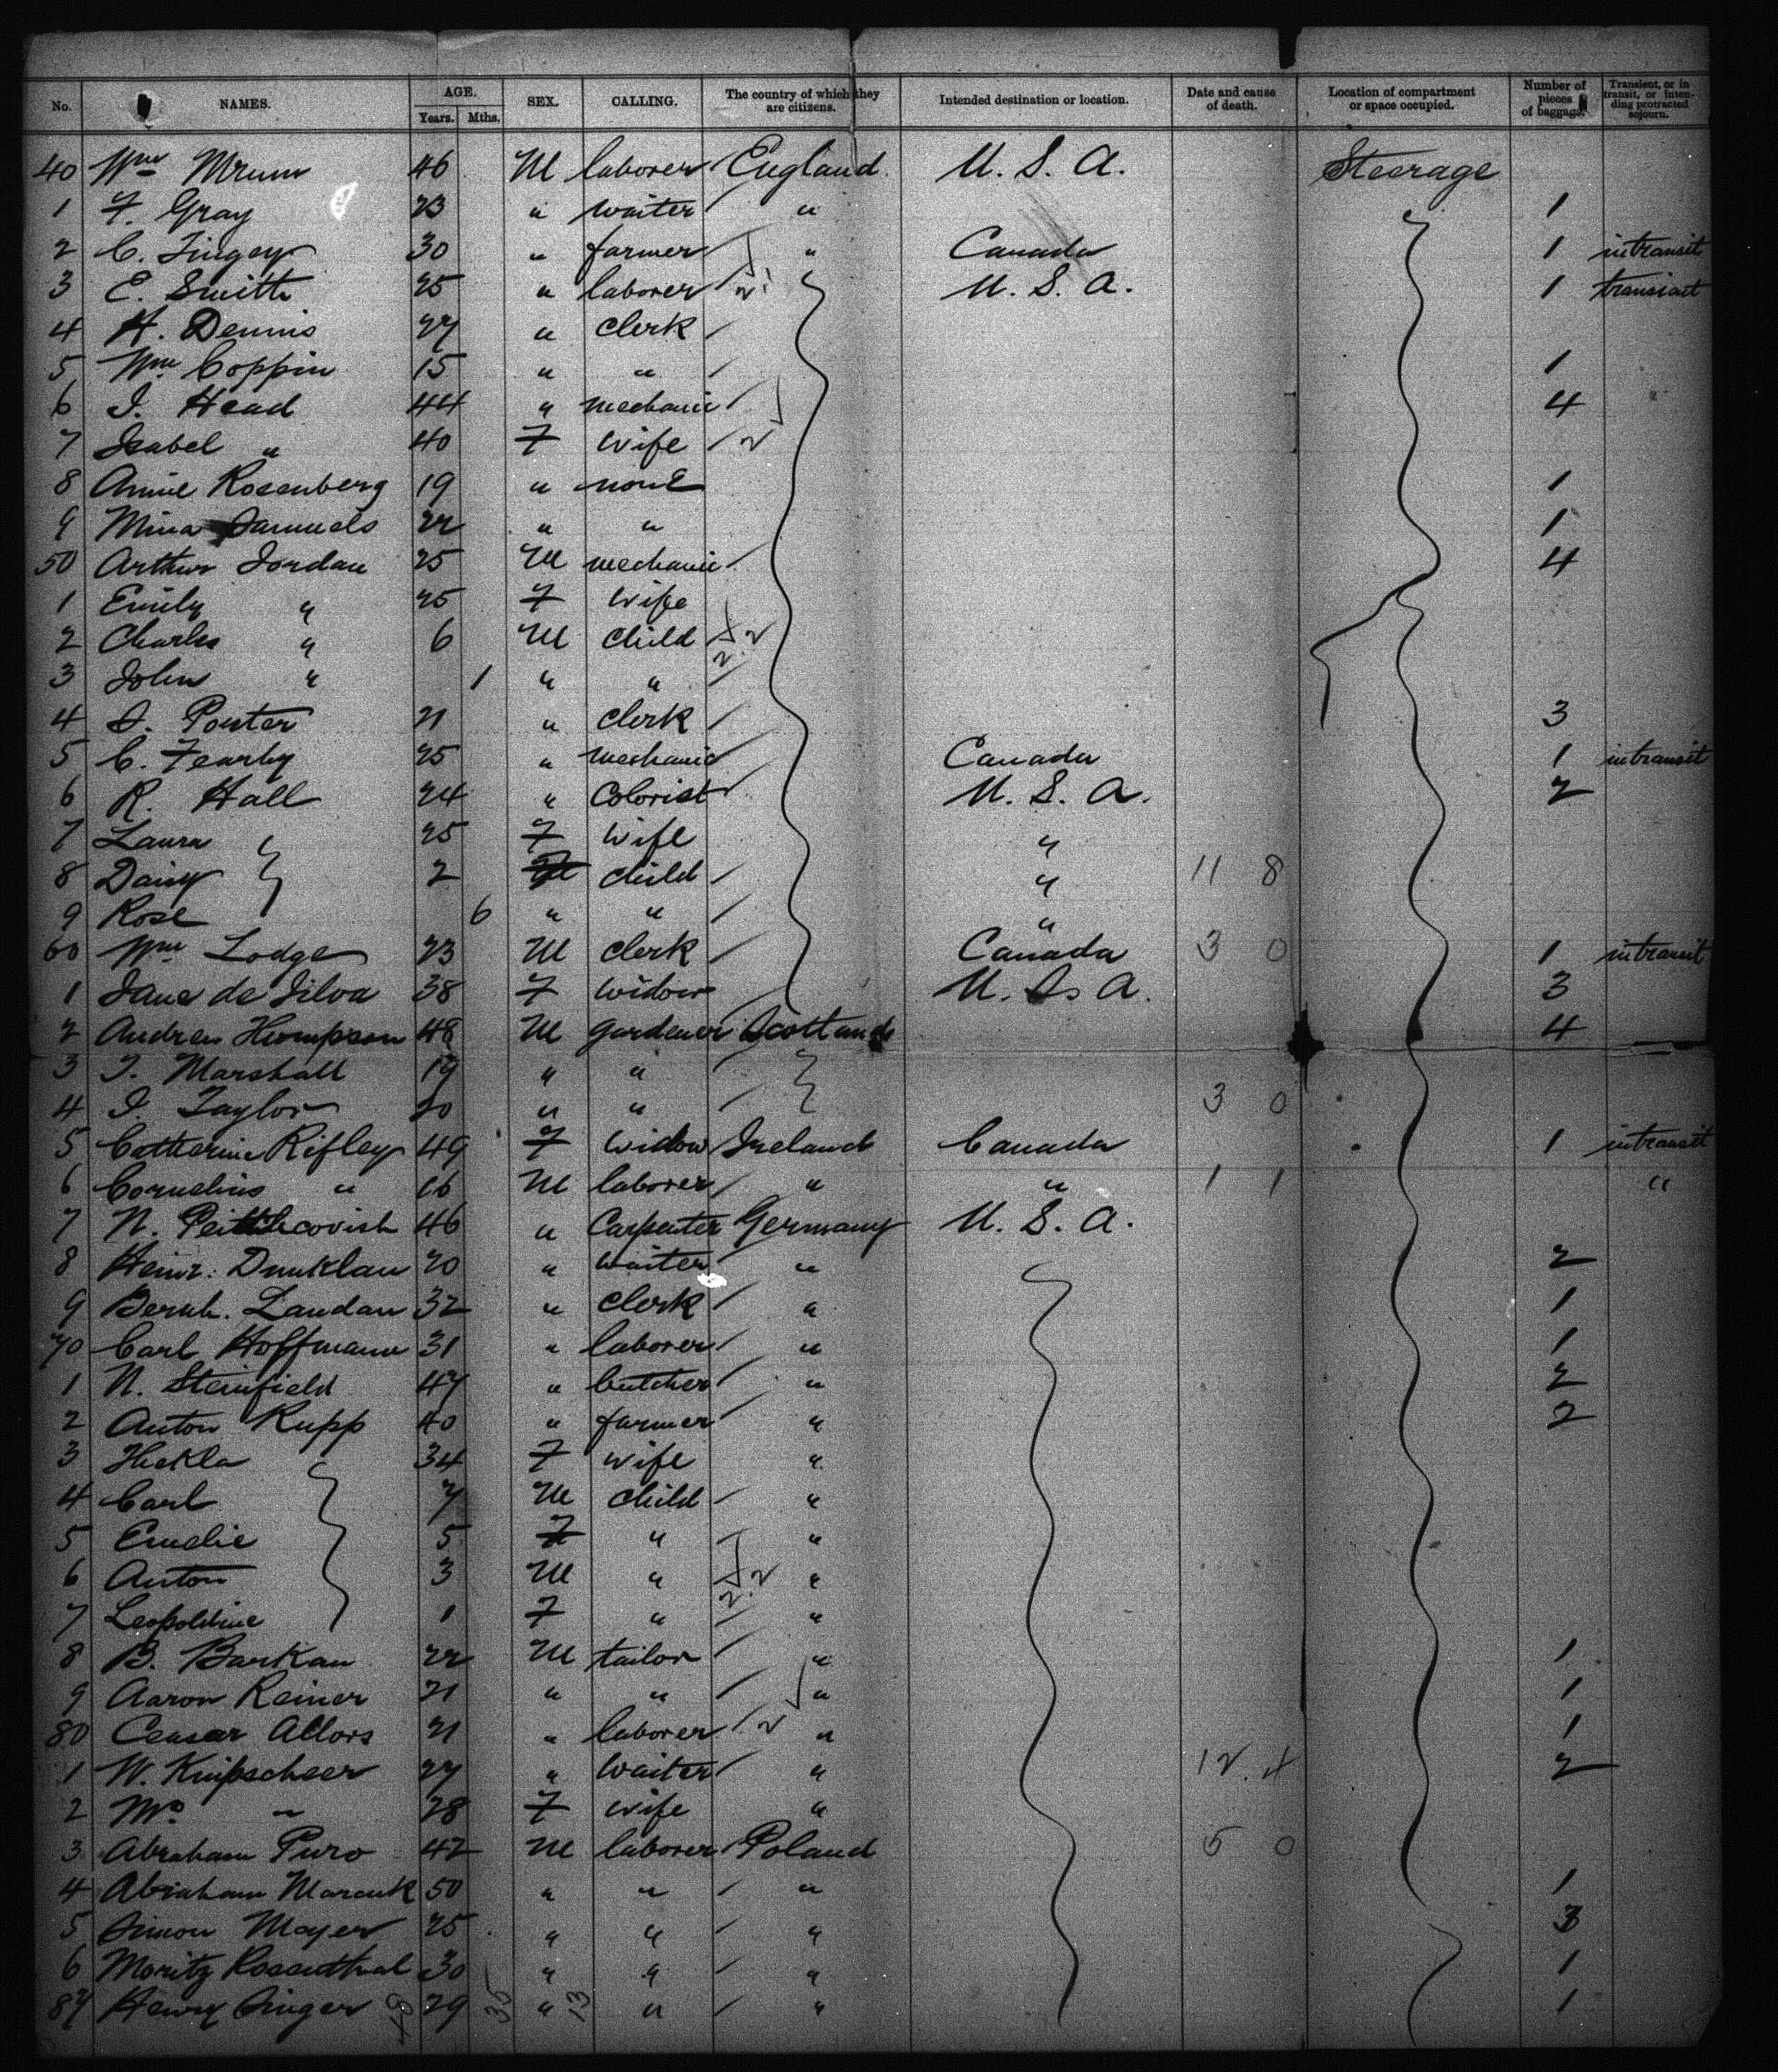 No. NAMES. AGE. Years. Mths. SEX. CALLING. The country of which they are citizens. Intended destination or location. Date and cause of death. Location of compartment or space occupied. Number of pieces of baggage. Transient, or in transit, or intending protracted sojourn.
40 Wm Mrum 46 M laborer England U. S. A. Steerage
1 F. Gray 23 " waiter " 1
2 C. Tingey 30 " farmer " Canada 1 intransit
3 E. Smith 25 " laborer U. S. A. 1 transient
4 A. Dennis 27 " clerk
5 Wm Coppin 15 " " 1
6 J. Head 44 " mechanic 4
7 Isabel " 40 F wife
8 Annie Rosenberg 19 " none 1
9 Mina Samuels 22 " " 1
50 Arthur Jordan 25 M mechanic 4
1 Emily " 25 F wife
2 Charles " 6 M child
3 John " 1 " "
4 J. Porter 21 " clerk 3
5 C. Fearby 25 " mechanic Canada 1 intransit
6 R. Hall 24 " Colorist U. S. A. 2
7 Laura 25 F wife "
8 Daisy 2 child " 11 8
9 Rose 6 " " "
60 Wm Lodge 23 M clerk Canada 3 0 1 intransit
1 Jane de Silva 38 F widow U. S. A. 3
2 Andrew Thompson 48 M gardener Scotland 4
3 T. Marshall 19 " "
4 J. Taylor 20 " " 3 0
5 Catherine Rifley 49 F widow Ireland Canada 1 intransit
6 Cornelius " 16 M laborer " " 1 1 "
7 N. 46 " Carpenter Germany U. S. A.
8 Heinr. Dunklau 20 " waiter " 2
9 Bernh. Landau 32 " clerk " 1
70 Carl Hoffmann 31 " laborer " 1
1 N. Steinfield 47 " butcher " 2
2 Anton Rupp 40 " farmer " 2
3 Thekla 34 F wife "
4 Carl 7 M child "
5 Emelie 5 F " "
6 Anton 3 M " "
7 Leopoldine 1 F " "
8 B. Barkan 22 M tailor " 1
9 Aaron Reiner 21 " " " 1
80 Ceasar Allors 21 " laborer " 1
1 W. Knipscheer 27 " waiter " 12. 4 2
2 Mrs " 28 F wife "
3 Abraham Puro 42 M laborer Poland 5 0
4 Abraham Marcuk 50 " " " 1
5 Simon Mayer 25 " " " 3
6 Moritz Rosenthal 30 " " " 1
87 Henry Singer 29 " " " 1
35 13